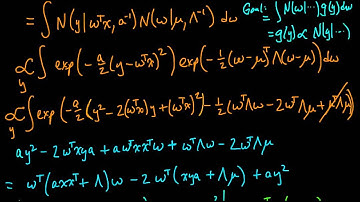 = ∫ N(y | wᵀx, a⁻¹) N(w | μ, Λ⁻¹) dw
Goal: = ∫ N(w|⋯) g(y) dw
= g(y) ∝ N(y|⋯)
∝_y ∫ exp(-a/2 (y - wᵀx)²) exp(-1/2 (w-μ)ᵀ Λ(w-μ)) dw
∝_y ∫ exp(-a/2 (y² - 2(wᵀx)y + (wᵀx)²) - 1/2 (wᵀΛw - 2wᵀΛμ + μᵀΛμ))
ay² - 2wᵀxya + awᵀxxᵀw + wᵀΛw - 2wᵀΛμ
= wᵀ(axxᵀ + Λ)w - 2wᵀ(xya + Λμ) + ay²